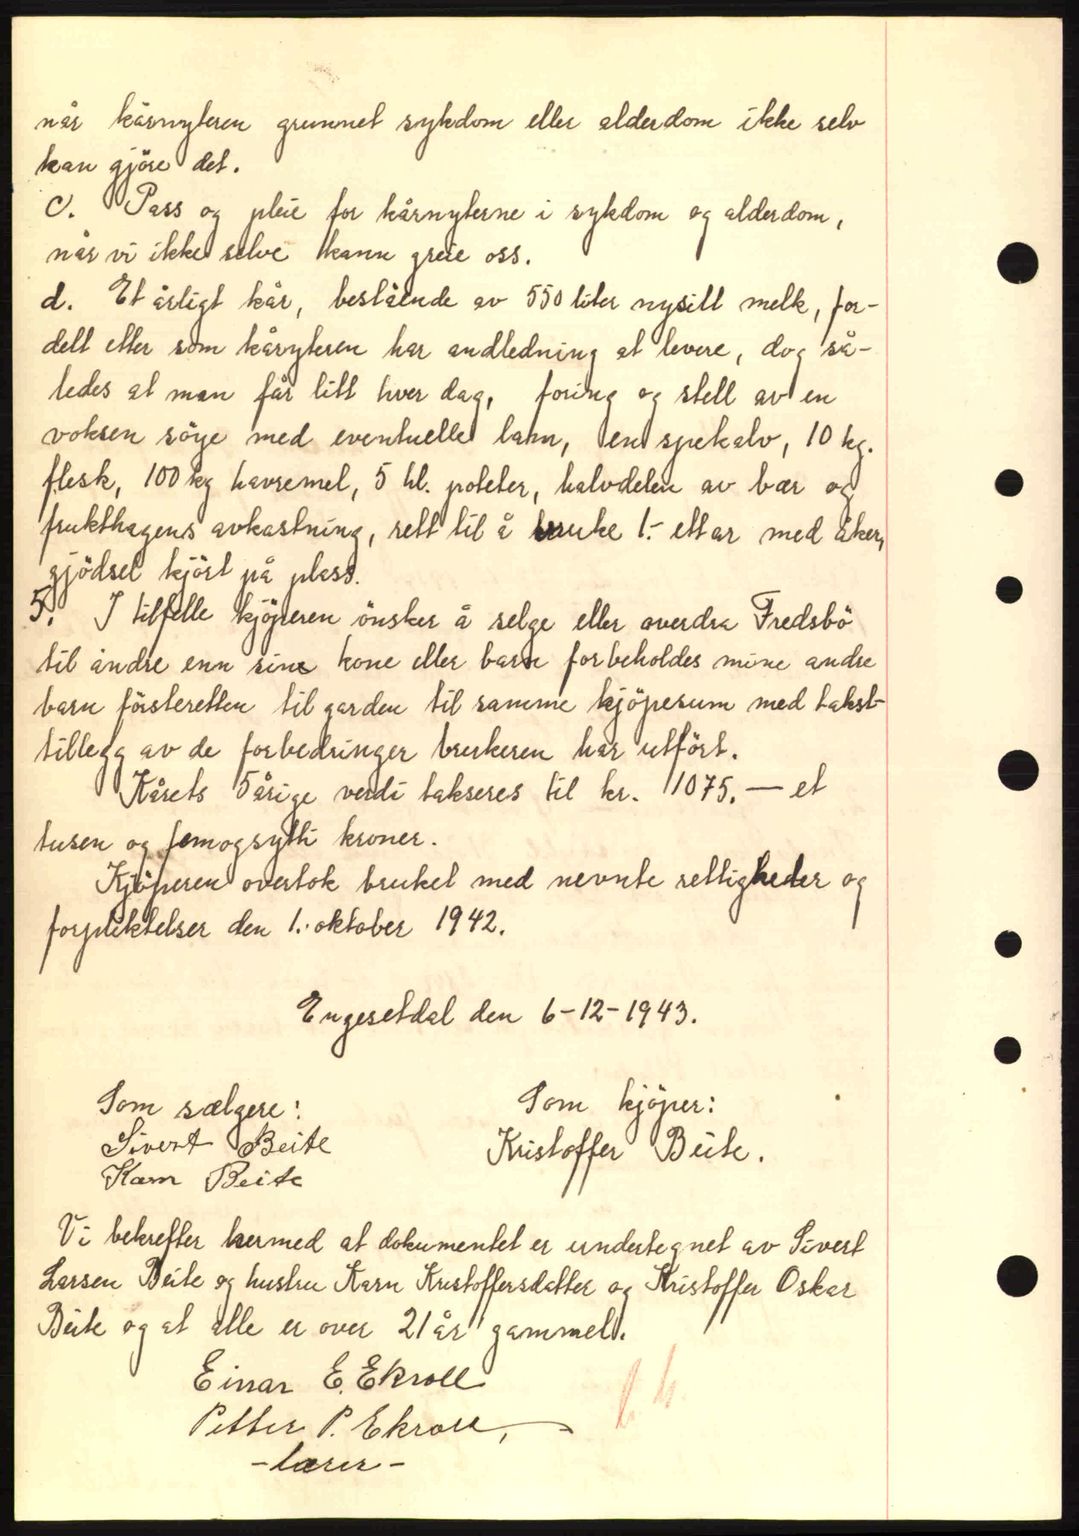 når kårnyteren grunnet sykdom eller alderdom ikke selv
kan gjöre det.
c. Pass og pleie for kårnyterne i sykdom og alderdom,
når vi ikke selve kann greie oss.
d. Et årligt kår, bestående av 550 liter nysilt melk, for-
delt etter som kåryteren har andledning at levere, dog så-
ledes at man får litt hver dag, foring og stell av en
voksen söye med eventuelle lam, en spekalv, 10 kg.
flesk, 100 kg havremel, 5 hl. poteter, halvdelen av bær og
frukthagens avkastning, rett til å bruke 1.- ett ar med åker,
gjödsel kjört på plass.
5. I tilfelle kjöperen önsker å selge eller overdra Fredsbö
til andre enn sine kone eller barn forbeholdes mine andre
barn försteretten til garden til samme kjöpesum med takst-
tillegg av de forbedringer brukeren har utfört.
Kårets 5årige verdi takseres til kr. 1075.— et
tusen og femogsytti kroner.
Kjöperen overtok bruket med nevnte rettigheder og
forpliktelser den 1. oktober 1942.
Engesetdal den 6-12-1943.
Som sælgere: Som kjöper:
Sivert Beite Kristoffer Beite.
Karn Beite
Vi bekrefter hermed at dokumentet er undertegnet av Sivert
Larsen Beite og hustru Karn Kristoffersdatter og Kristoffer Oskar
Beite og at alle er over 21 år gammel.
Einar E. Ekroll
Petter P. Ekroll,
- lærer -